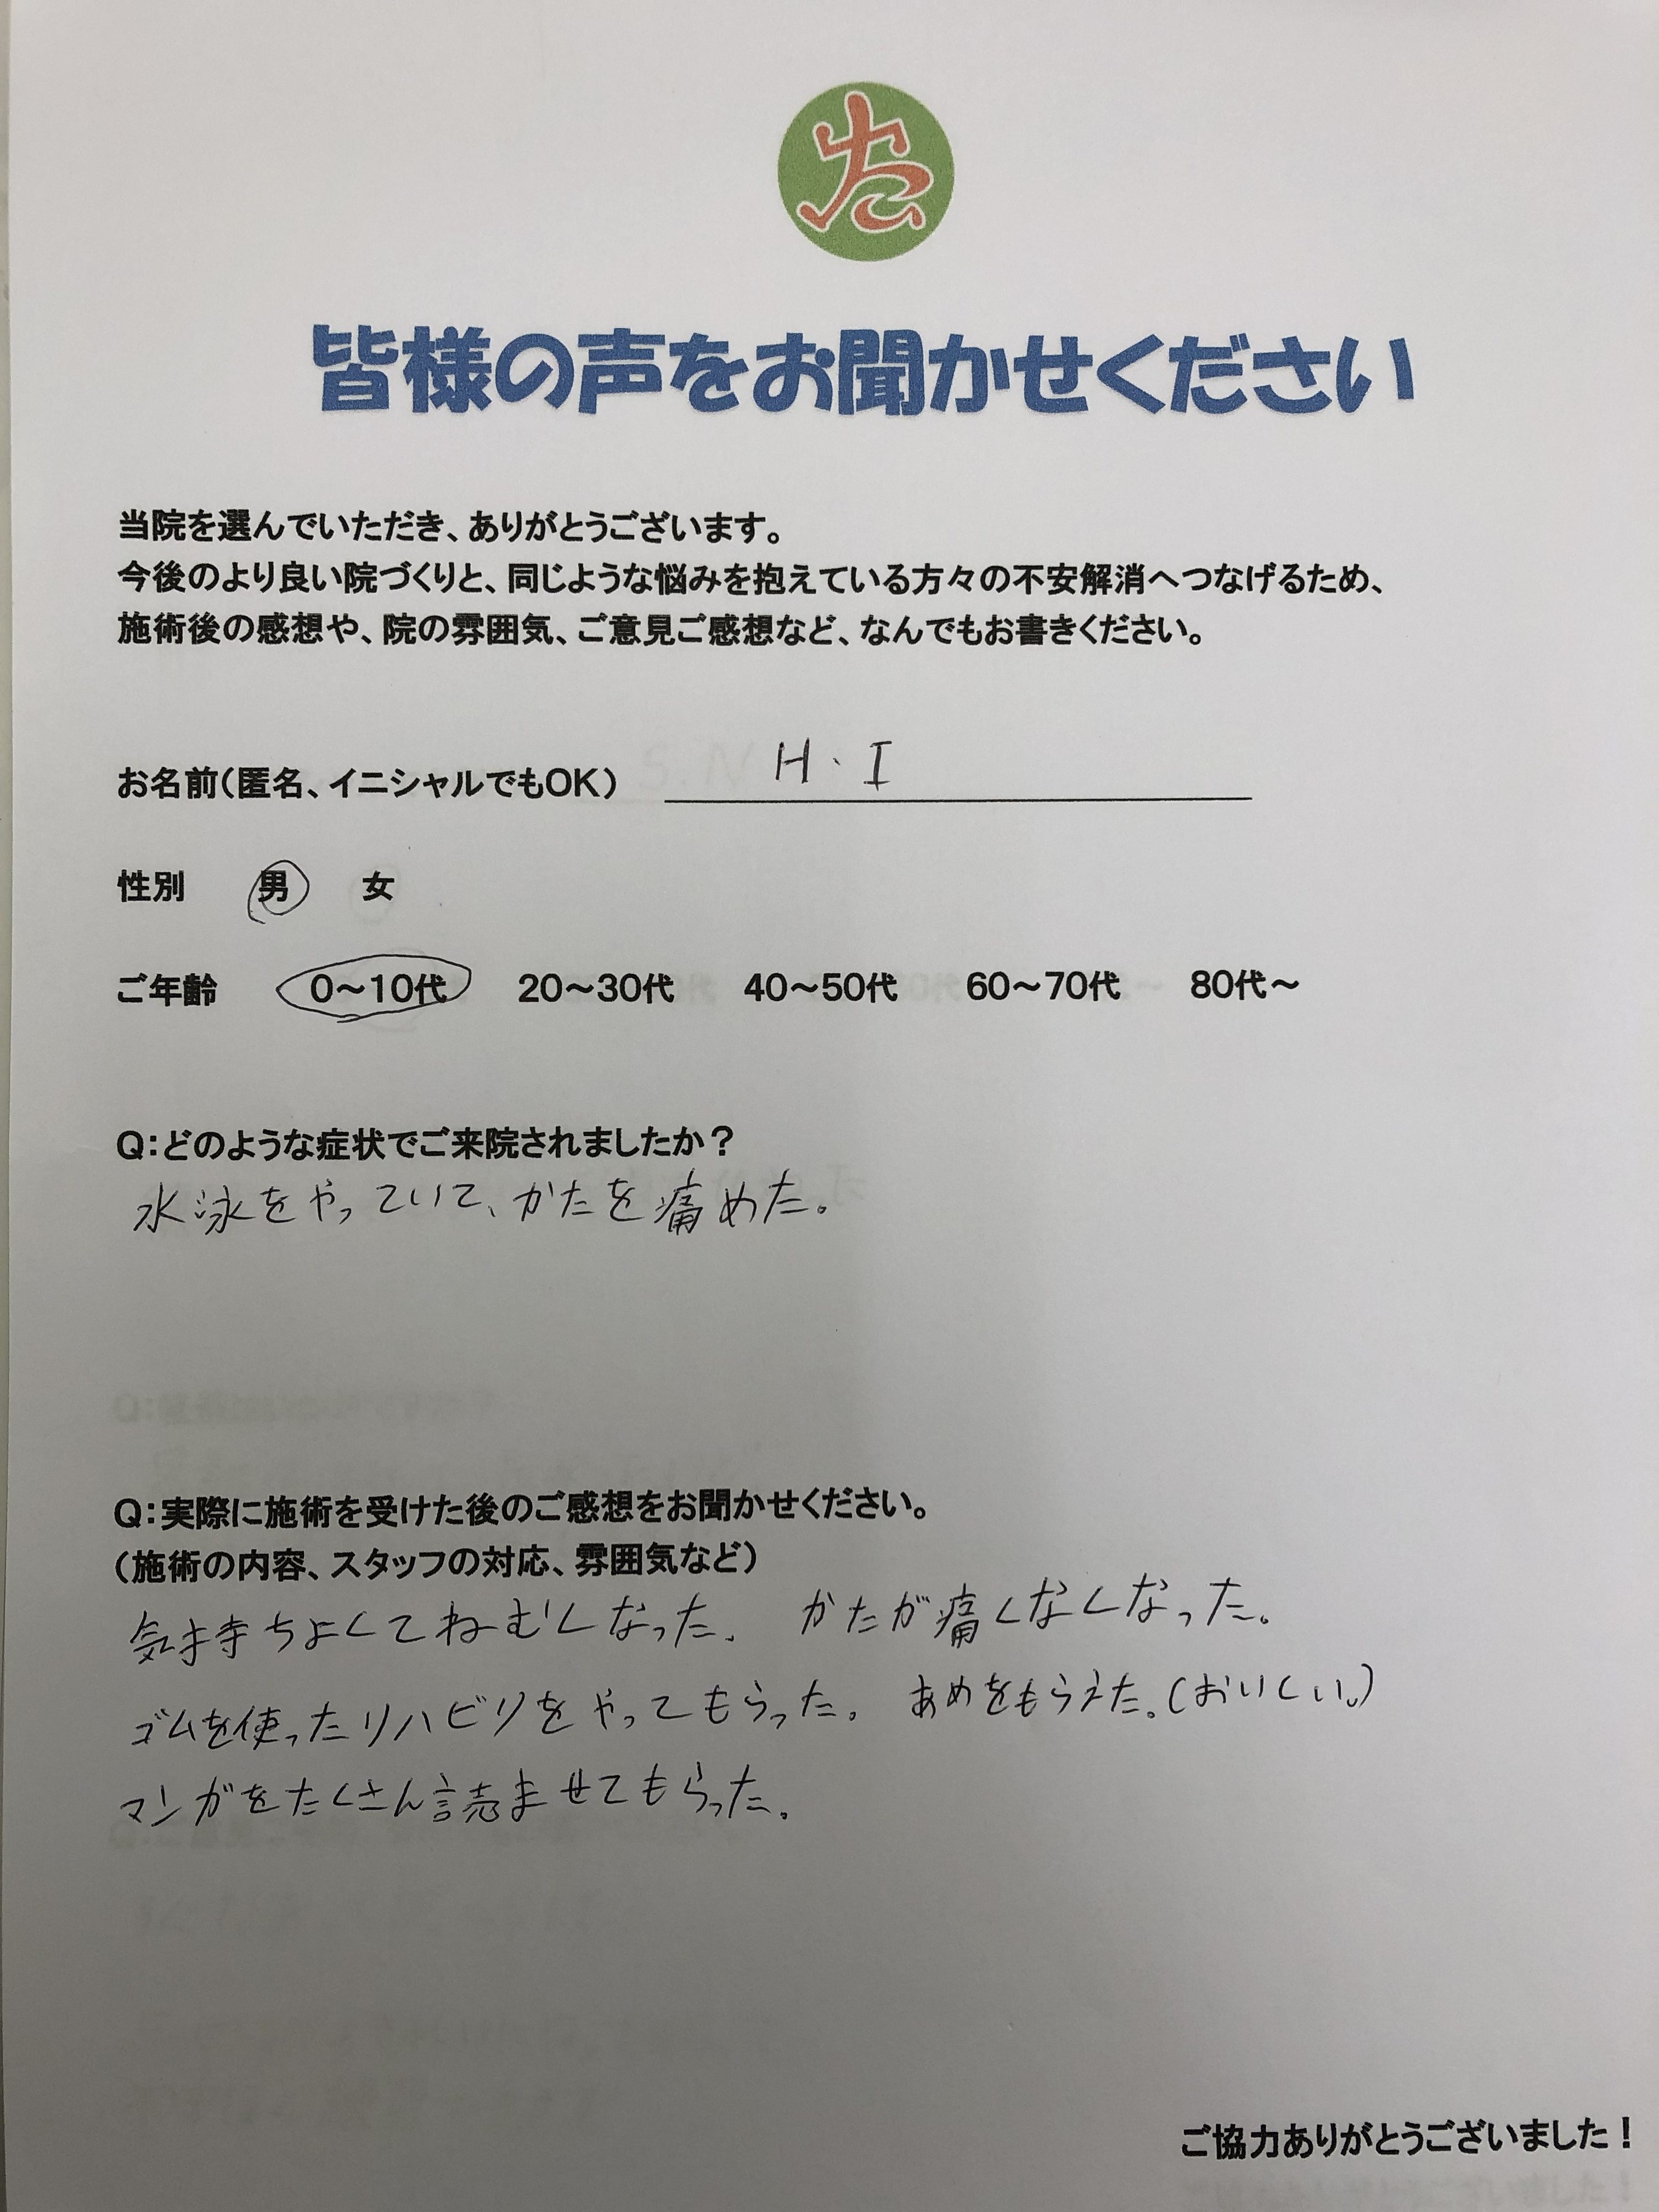 皆様の声をお聞かせください
当院を選んでいただき、ありがとうございます。
今後のより良い院づくりと、同じような悩みを抱えている方々の不安解消へつなげるため、
施術後の感想や、院の雰囲気、ご意見ご感想など、なんでもお書きください。
お名前(匿名、イニシャルでもOK) H・I
性別 男 女
ご年齢 0～10代 20～30代 40～50代 60～70代 80代～
Q:どのような症状でご来院されましたか?
水泳をやっていて、かたを痛めた。
Q:実際に施術を受けた後のご感想をお聞かせください。
(施術の内容、スタッフの対応、雰囲気など)
気持ちよくてねむくなった。 かたが痛くなくなった。
ゴムを使ったリハビリをやってもらった。 あめをもらえた。(おいしい。)
マンガをたくさん読ませてもらった。
ご協力ありがとうございました!